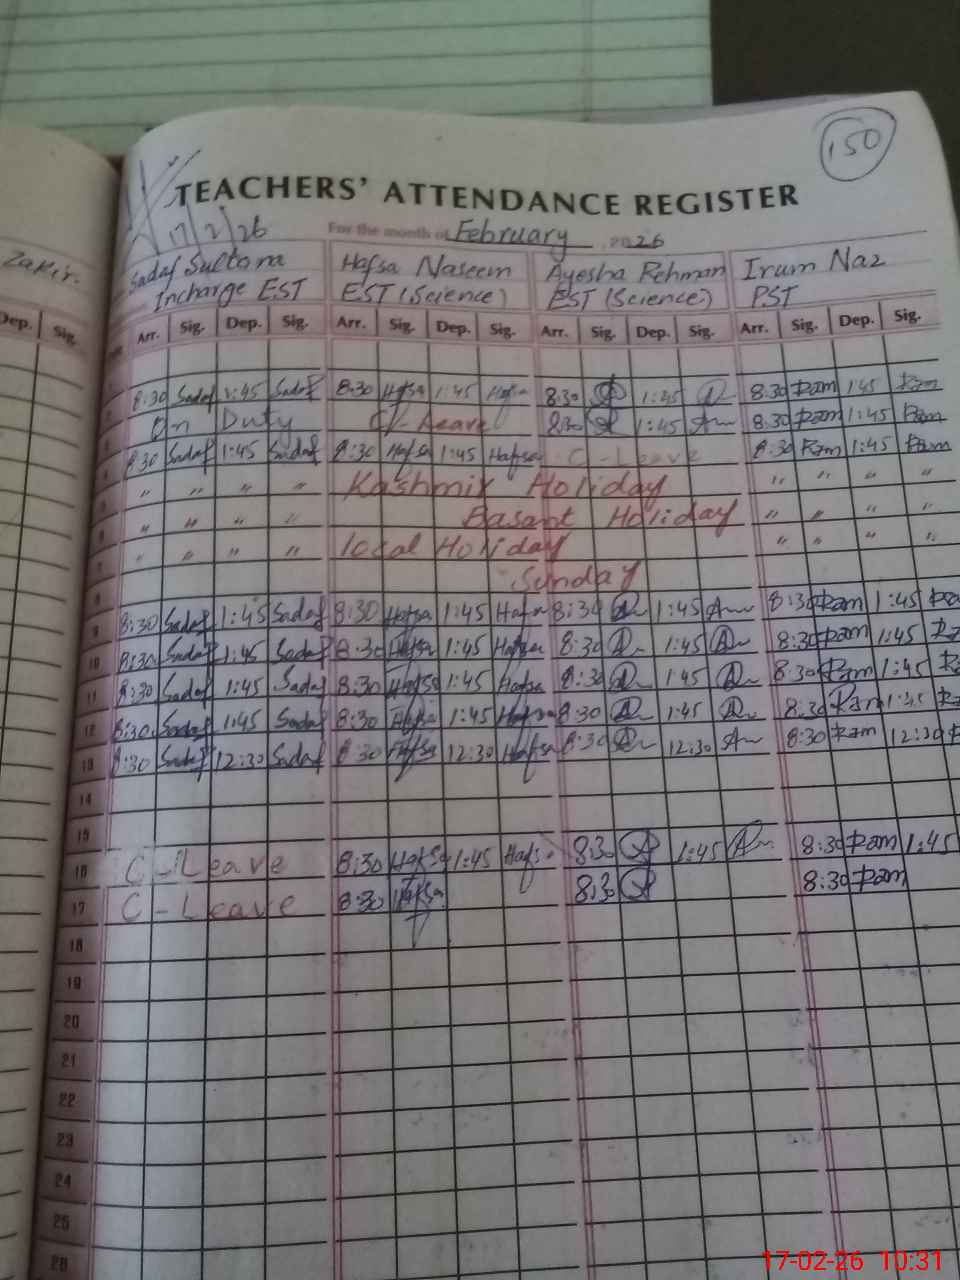 150
TEACHERS' ATTENDANCE REGISTER
17/2/26
For the month of February 2026
Zakir. Sadaf Sultana Hafsa Naseem Ayesha Rehman Irum Naz
Incharge EST EST (Science) EST (Science) PST
Dep. Sig. Arr. Sig. Dep. Sig. Arr. Sig. Dep. Sig. Arr. Sig. Dep. Sig. Arr. Sig. Dep. Sig.
8:30 Sadaf 1:45 Sadaf 8:30 Hafsa 1:45 Hafsa 8:30 1:45 8:30 1:45
On Duty C/Leave 8:30 1:45 8:30 1:45
8:30 Sadaf 1:45 Sadaf 8:30 Hafsa 1:45 Hafsa C-Leave 8:30 1:45
" " " " Kashmir Holiday " " " "
" " " " Basant Holiday " " " "
" " " " local Holiday " " " "
Sunday
9 8:30 Sadaf 1:45 Sadaf 8:30 Hafsa 1:45 Hafsa 8:30 1:45 8:30 1:45
10 8:30 Sadaf 1:45 Sadaf 8:30 Hafsa 1:45 Hafsa 8:30 1:45 8:30 1:45
11 8:30 Sadaf 1:45 Sadaf 8:30 Hafsa 1:45 Hafsa 8:30 1:45 8:30 1:45
12 8:30 Sadaf 1:45 Sadaf 8:30 Hafsa 1:45 Hafsa 8:30 1:45 8:30 1:45
13 8:30 Sadaf 12:30 Sadaf 8:30 Hafsa 12:30 Hafsa 8:30 12:30 8:30 12:30
14
15
16 C-Leave 8:30 Hafsa 1:45 Hafsa 8:30 1:45 8:30 1:45
17 C-Leave 8:30 Hafsa 8:30 8:30
18
19
20
21
22
23
24
25
26
17-02-26 10:31